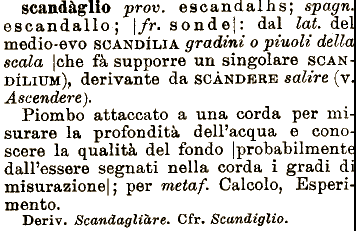 scandàglio prov. escandalhs; spagn.
escandallo; |fr. sonde|: dal lat. del
medio-evo SCANDÍLIA gradini o piuoli della
scala |che fà supporre un singolare SCAN-
DÍLIUM), derivante da SCÀNDERE salire (v.
Ascendere).
Piombo attaccato a una corda per mi-
surare la profondità dell'acqua e cono-
scere la qualità del fondo |probabilmente
dall'essere segnati nella corda i gradi di
misurazione|; per metaf. Calcolo, Esperi-
mento.
Deriv. Scandagliàre. Cfr. Scandiglio.